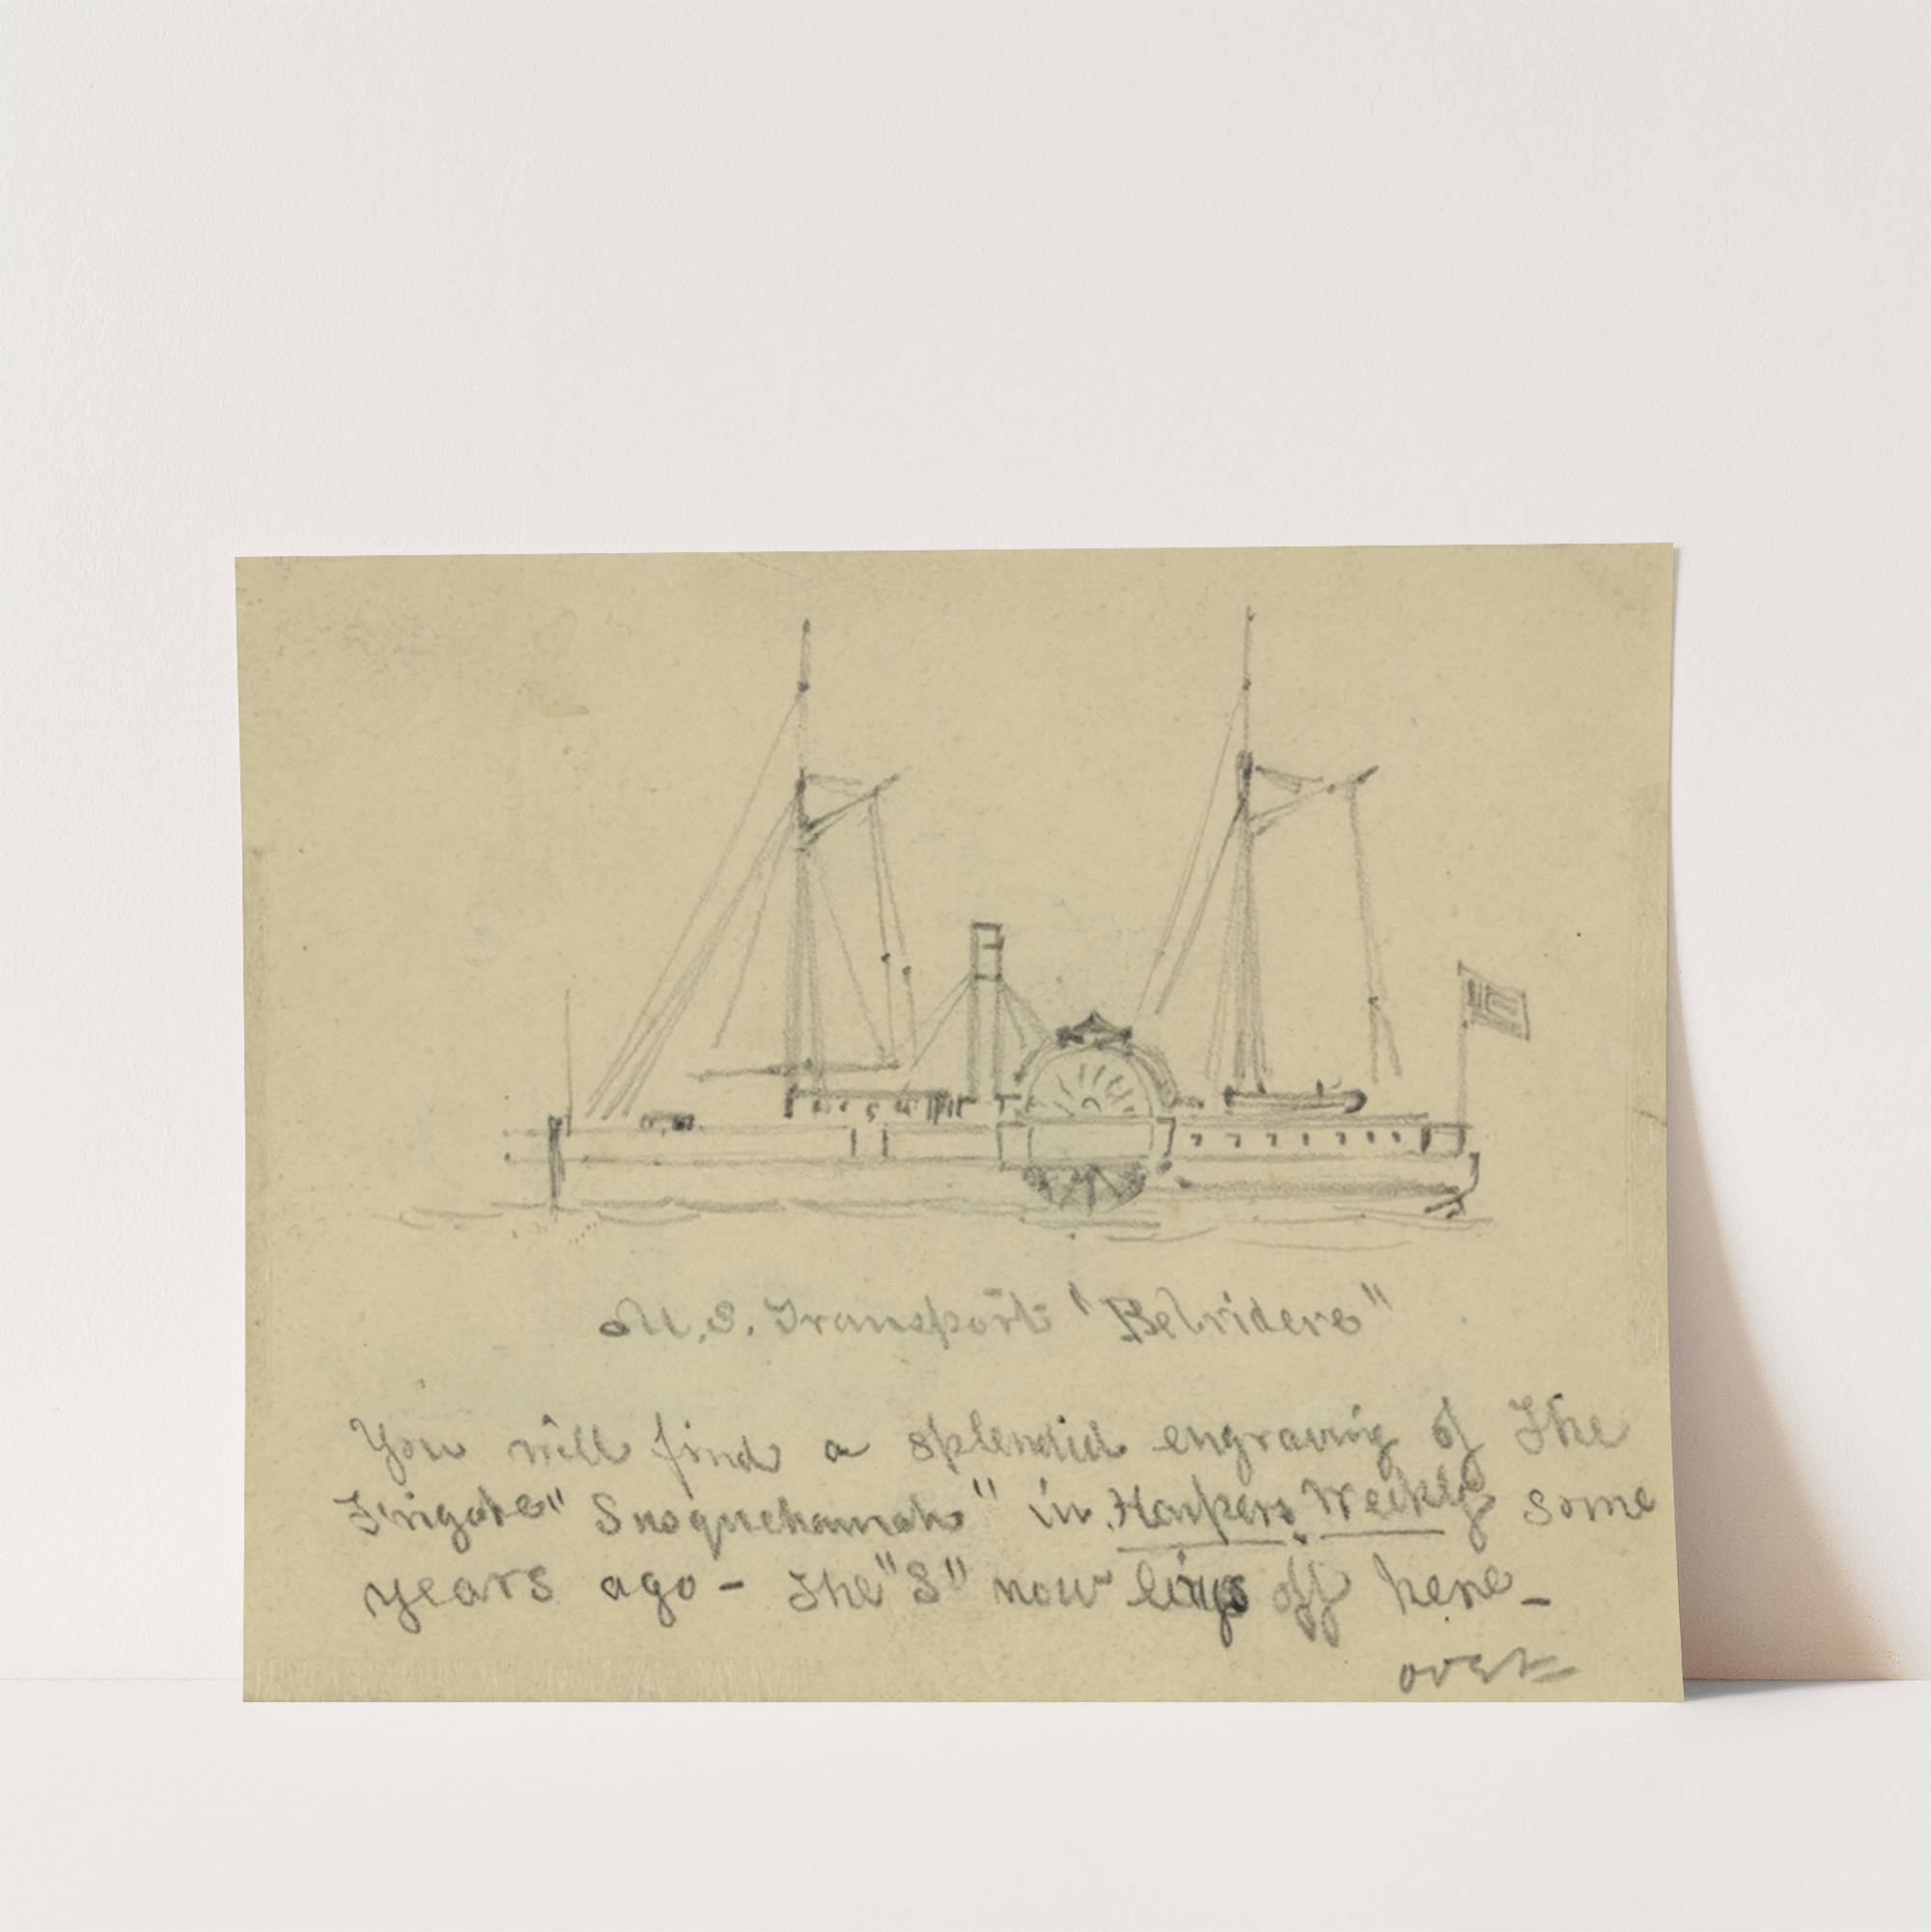 U.S. Transport "Belvidere"
You will find a splendid engraving of The
Frigate "Susquehannah" in Harpers Weekly some
years ago - The "S" now lays off here -
over